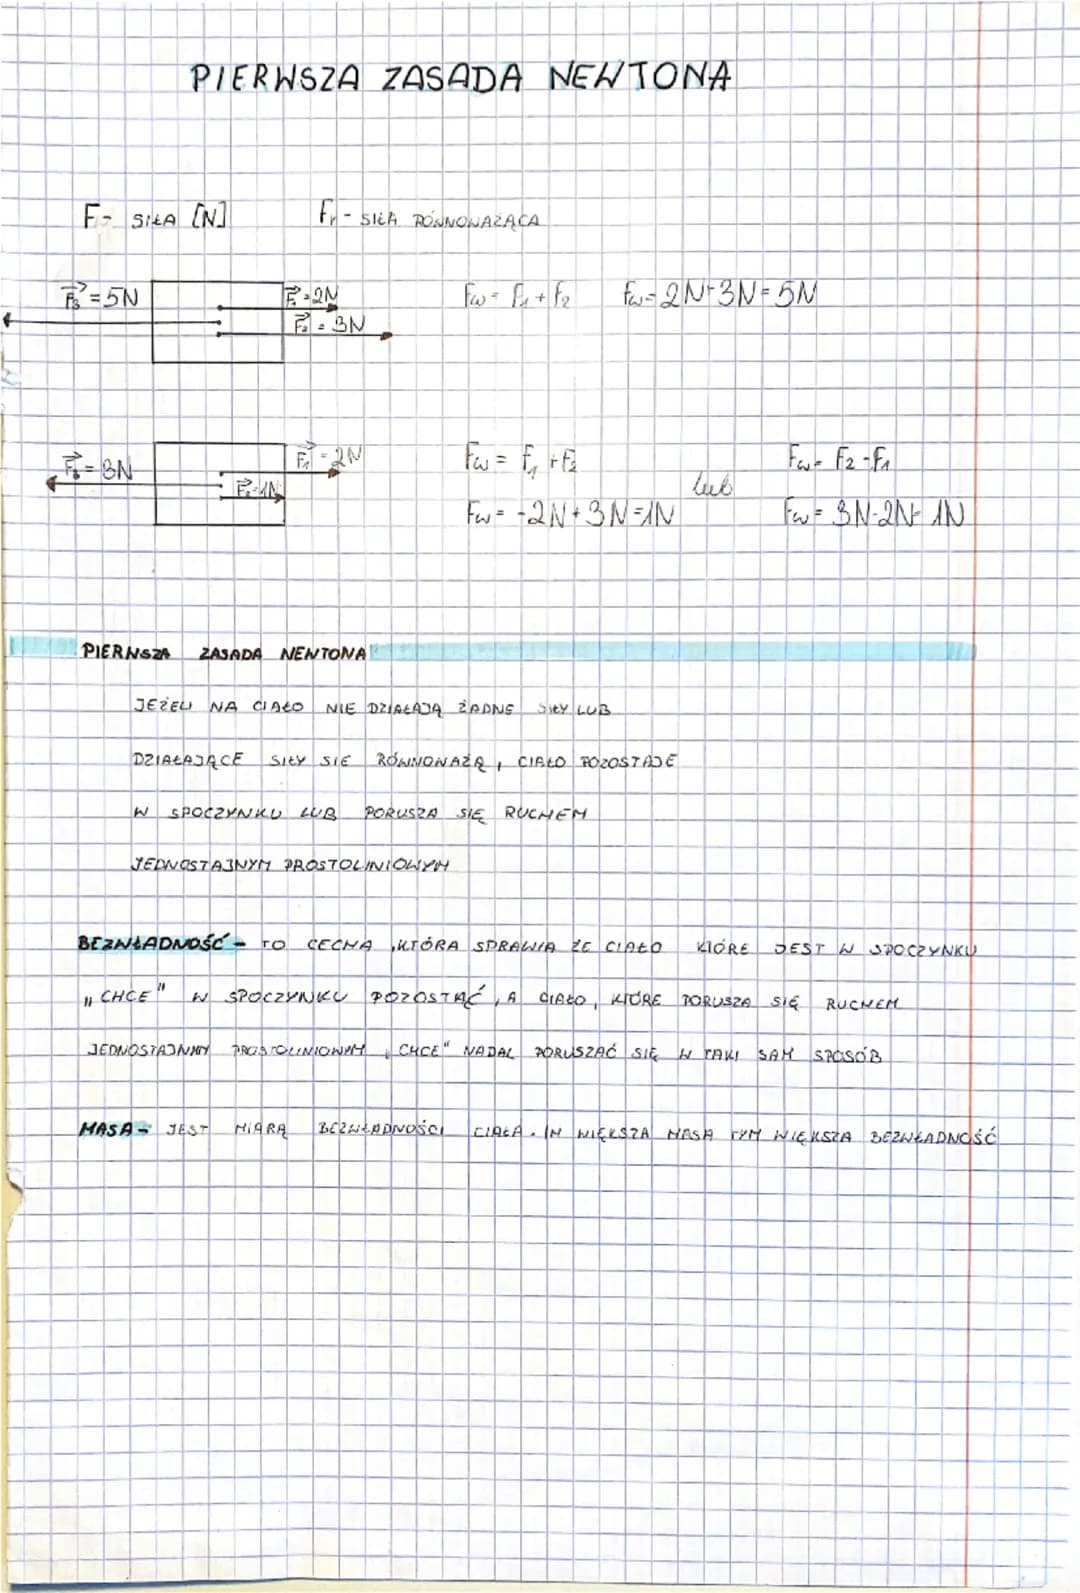 PIERWSZA ZASADA NEWTONA
F- SIŁA [N] Fr - SIŁA RÓWNOWAŻĄCA
F3 = 5N F1 = 2N Fw = F1 + F2 Fw = 2N+3N=5N
F2 = 3N
= 3N F1 = 2N Fw = F1 + F2 Fw = F2 - F1
F = 1N lub
Fw = -2N+3N=1N Fw = 3N-2N= 1N
PIERWSZA ZASADA NEWTONA
JEŻELI NA CIAŁO NIE DZIAŁAJĄ ŻADNE SIŁY LUB
DZIAŁAJĄCE SIŁY SIĘ RÓWNOWAŻĄ, CIAŁO POZOSTAJE
W SPOCZYNKU LUB PORUSZA SIĘ RUCHEM
JEDNOSTAJNYM PROSTOLINIOWYM
BEZWŁADNOŚĆ - TO CECHA ,KTÓRA SPRAWIA ŻE CIAŁO KTÓRE JEST W SPOCZYNKU
„CHCE" W SPOCZYNKU POZOSTAĆ, A CIAŁO, KTÓRE PORUSZA SIĘ RUCHEM
JEDNOSTAJNYM PROSTOLINIOWYM „CHCE" NADAL PORUSZAĆ SIĘ W TAKI SAM SPOSÓB
MASA - JEST MIARĄ BEZWŁADNOŚCI CIAŁA. IM WIĘKSZA MASA TYM WIĘKSZA BEZWŁADNOŚĆ